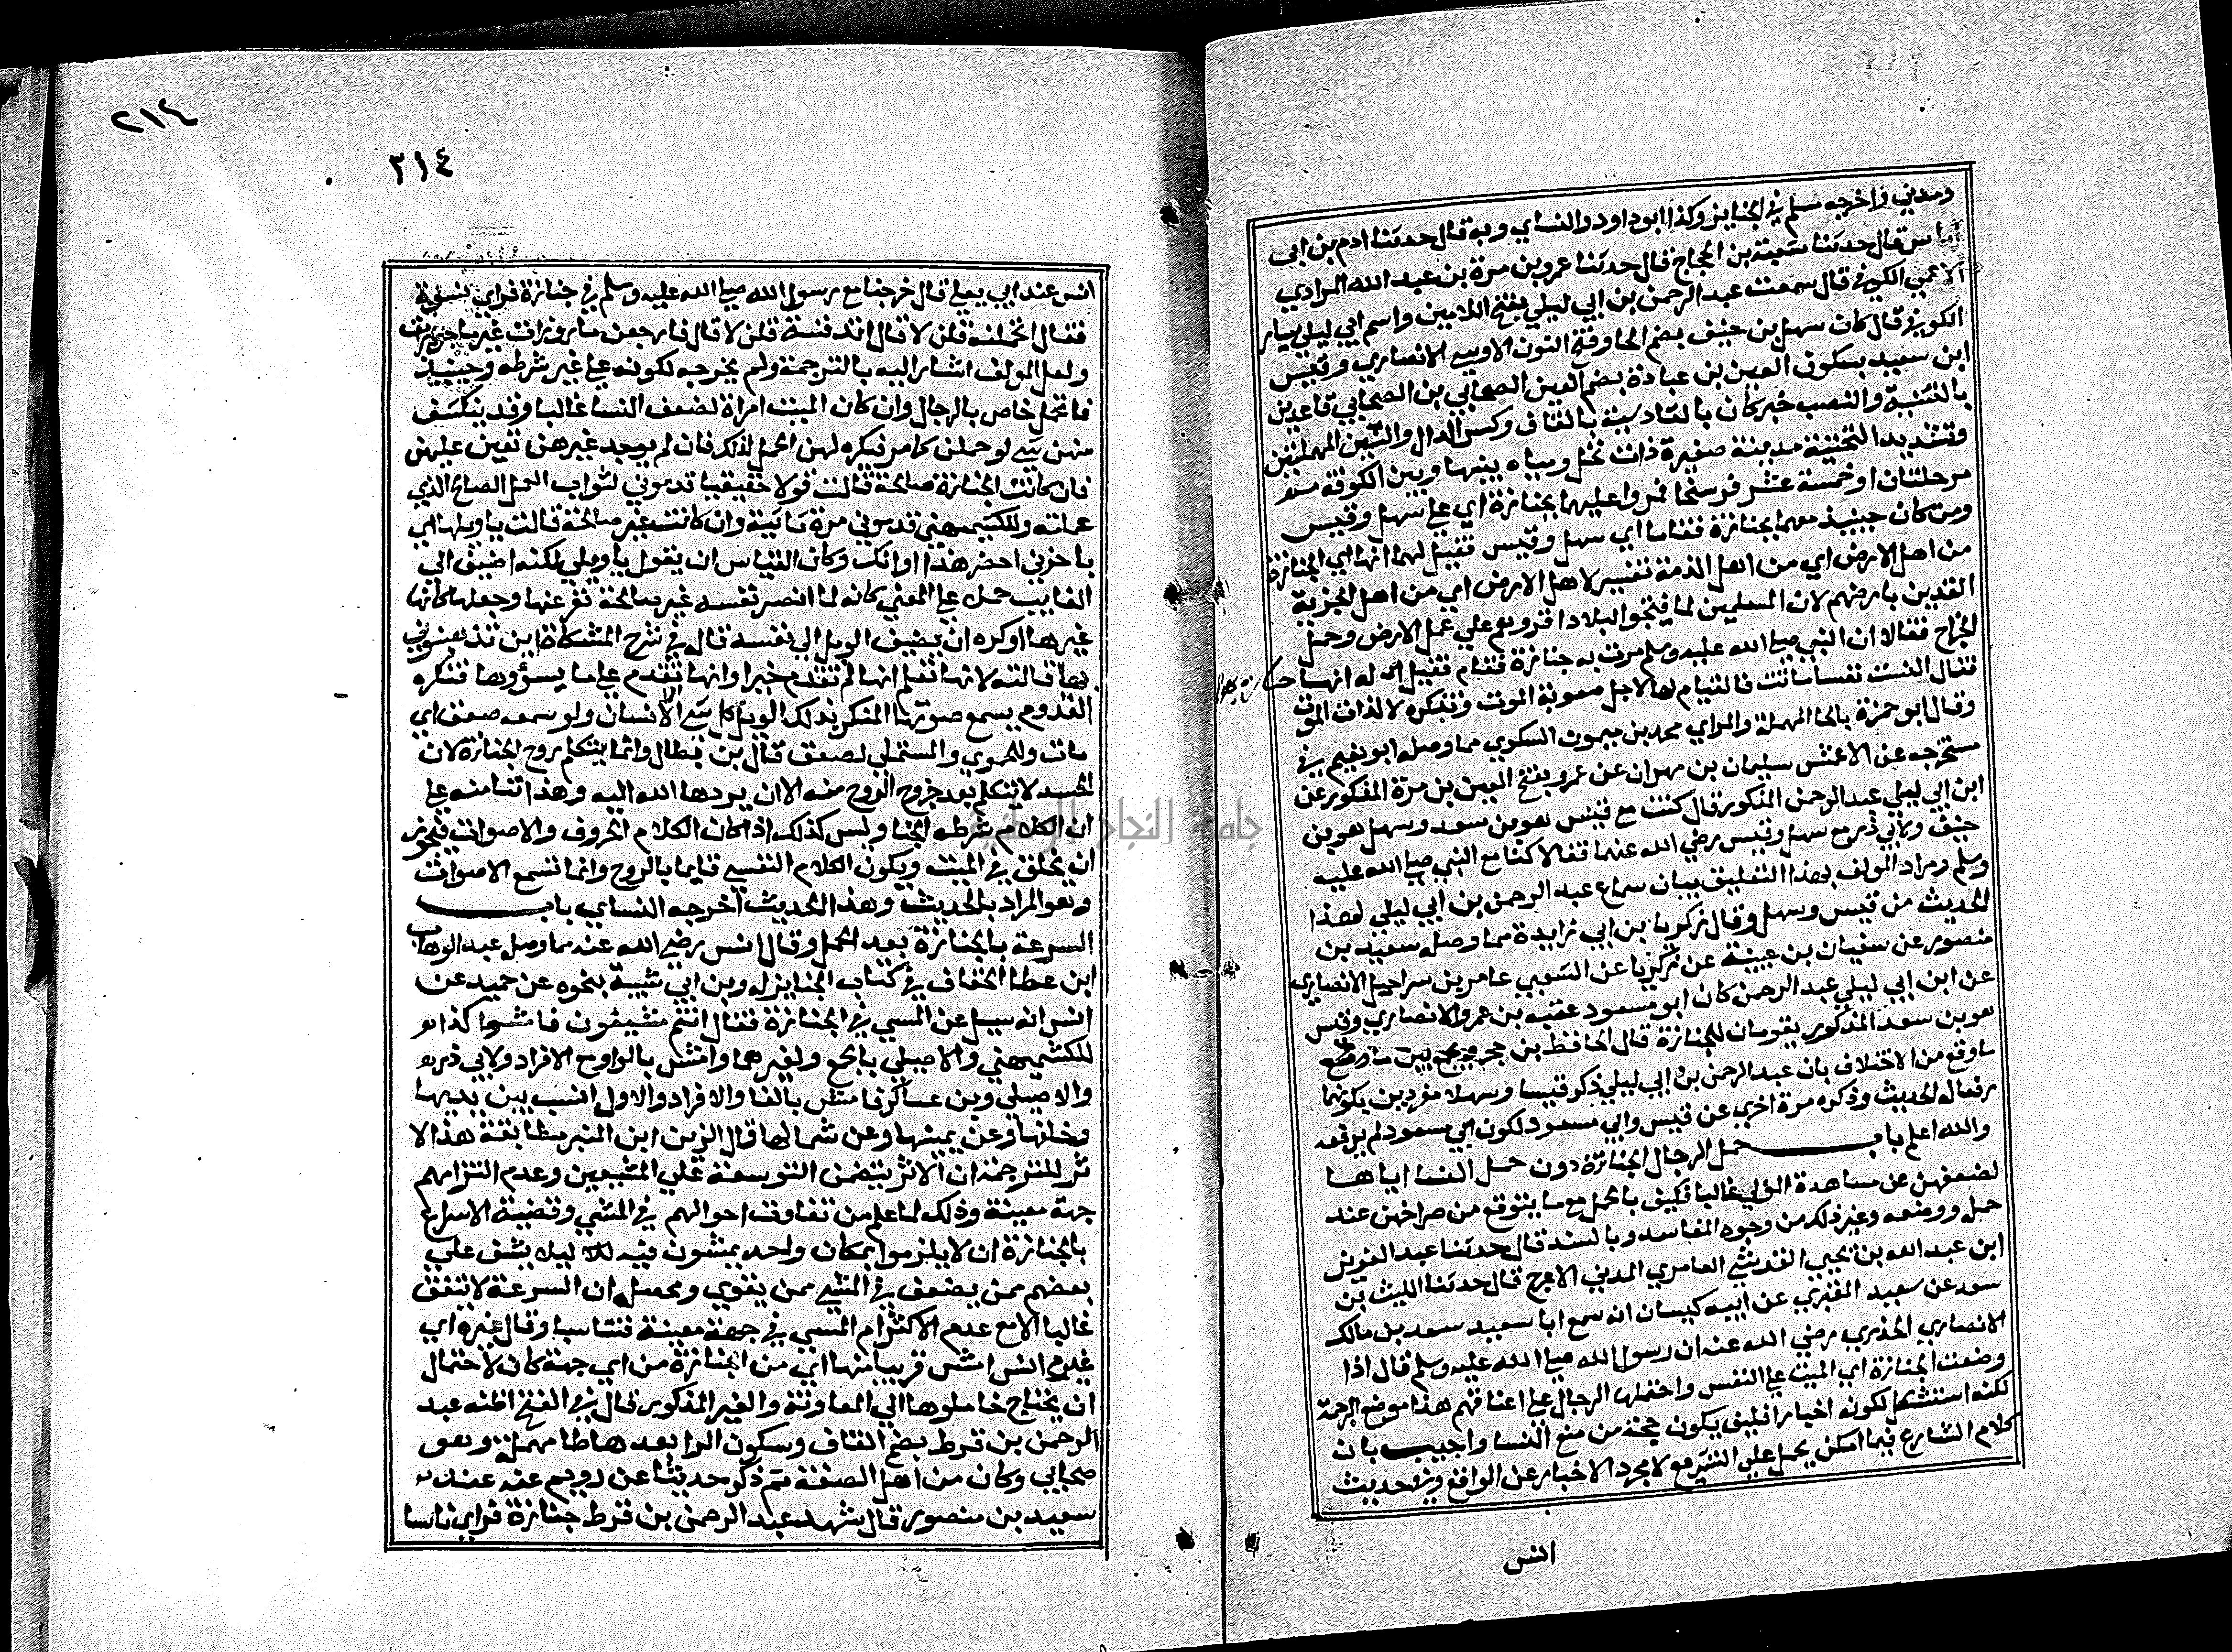 ومدني واخرجه مسلم في الجنايز وكذا ابو داود والنساي وبه قال حدثنا ادم بن ابي
اياس قال حدثنا شعبة بن الحجاج قال حدثنا عمرو بن مرة بن عبد الله المرادي
الاعمي الكوفي قال سمعت عبد الرحمن بن ابي ليلي بفتح اللامين واسم ابي ليلي يسار
الكوفي قال كان سهل بن حنيف بضم الحا وفتح النون الاوسي الانصاري وقيس
ابن سعيد بسكون العين بن عبادة بضم العين الصحابي بن الصحابي قاعدين
بالتثنية والنصب خبر كان بالقادسية بالقاف وكسر الدال والسين المهملتين
وتشديد التحتية مدينة صغيرة ذات نخل ومياه بينها وبين الكوفة
مرحلتان او خمسة عشر فرسخا فمروا عليهما بجنازة اي علي سهل وقيس
ومن كان حينيذ معهما بجنازة فقاما اي سهل وقيس فقيل لهما انها اي الجنازة
من اهل الارض اي من اهل الذمة تفسير لاهل الارض اي من اهل الجزية
المقرين بارضهم لان المسلمين لما فتحوا البلاد اقروهم علي عمل الارض وحمل
الخراج فقالا ان النبي صلي الله عليه وسلم مرت به جنازة فقام فقيل له انها جنازة يهودي
فقال اليست نفسا ماتت فالقيام لها لاجل صعوبة الموت وتذكره لا لذات الموت
وقال ابو حمزة بالحا المهملة والزاي محمد بن ميمون السكري مما وصله ابو نعيم في
مستخرجه عن الاعمش سليمان بن مهران عن عمرو بفتح العين بن مرة المذكور عن
ابن ابي ليلي عبد الرحمن المذكور قال كنت مع قيس هو بن سعد وسهل هو بن
حنيف ولابي ذر مع سهل وقيس رضي الله عنهما فقالا كنا مع النبي صلي الله عليه
وسلم ومراد المولف بهذا التعليق بيان سماع عبد الرحمن بن ابي ليلي لهذا
الحديث من قيس وسهل وقال زكريا بن ابي زايدة مما وصله سعيد بن
منصور عن سفيان بن عيينة عن زكريا عن الشعبي عامر بن سراحيل الانصاري
عن ابن ابي ليلي عبد الرحمن كان ابو مسعود عقبه بن عمرو الانصاري وقيس
هو بن سعد المذكور يقومان للجنازة قال الحافظ بن حجر وجمع بين ما وقع
ما وقع من الاختلاف بان عبد الرحمن بن ابي ليلي ذكر قيسا وسهلا مفردين لكونهما
رفعا له الحديث وذكره مرة اخري عن قيس وابي مسعود لكون ابي مسعود لم يرفعه
والله اعلم باب حمل الرجال الجنازة دون حمل النسا اياها
لضعفهن عن مساهدة الموتي غالبا فكيف بالحمل مع ما يتوقع من صراخهن عند
حمله ووضعه وغير ذلك من وجوه المفاسد وبالسند قال حدثنا عبد العزيز
ابن عبد الله بن يحيي القديشي العامري المدني الاعرج قال حدثنا الليث بن
سعد عن سعيد المقبري عن ابيه كيسان انه سمع ابا سعيد سعد بن مالك
الانصاري الخدري رضي الله عنه ان رسول الله صلي الله عليه وسلم قال اذا
وضعت الجنازة اي الميت علي النعش واحتملها الرجال علي اعناقهم هذا موضع الترجمة
لكنه استشكل لكونه اخبارا فكيف يكون حجة من منع النسا واجيب بان
كلام الشارع فيما امكن يحمل علي التشريع لا مجرد الاخبار عن الواقع وفي حديث
انس
٢١٤
٣١٤
انس عند ابي يعلي قال خرجنا مع رسول الله صلي الله عليه وسلم في جنازة فراي نسوة
فقال اتحملنه قلن لا قال اتدفنه قلن لا قال فارجعن مازورات غير ماجورات
ولعل المولف اشار اليه بالترجمة ولم يخرجه لكونه علي غير شرطه وحينيذ
فالحمل خاص بالرجال وان كان الميت امراة لضعف النسا غالبا وقد ينكشف
منهن شي لو حملن كما مر فيكره لهن الحمل لذلك فان لم يوجد غيرهن تعين عليهن
فان كانت الجنازة صالحة قالت قولا حقيقيا قدموني لثواب العمل الصالح الذي
عملته وللكشميهني قدموني مرة ثانية وان كانت غير صالحة قالت يا ويلها اي
يا حزني احضر هذا اوانك وكان القياس ان يقول يا ويلي لكنه اضيف الي
الغايب حملا علي المعني كانه لما ابصر نفسه غير صالحة نفر عنها وجعلها كانها
غيرها او كره ان يضيف الويل الي نفسه قال في شرح المشكاة اين تذهبون
بها قالته لانها تعلم انها لم تقدم خيرا وانها تقدم علي ما يسؤوها فتكره
القدوم يسمع صوتها المنكر بذلك الويل كل شي الا الانسان ولو سمعه صعق اي
مات وللحموي والمستملي لصعق قال بن بطال وانما يتكلم روح الجنازة لان
الجسد لا يتكلم بعد خروج الروح منه الا ان يردها الله اليه وهذا بنا منه علي
ان الكلام شرطه الحيا وليس كذلك اذا كان الكلام الحروف والاصوات فيجوز
ان يخلق في الميت ويكون الكلام النفسي قايما بالروح وانما تسمع الاصوات
وهو المراد بالحديث وهذا الحديث اخرجه النساي باب
السرعة بالجنازة بعد الحمل وقال انس رضي الله عنه مما وصله عبد الوهاب
ابن عطا الخفاف في كتاب الجنايز له وبن ابي شيبة بنحوه عن حميد عن
انس انه سيل عن المسي في الجنازة فقال انتم مشيعون فامشوا كذا
للكشميهني والاصيلي بالجمع ولغيرهما وامش بالواو مع الافراد ولابي ذر
والاصيلي وبن عساكر فامش بالفا والافراد والاول انسب بين يديها
وخلفها وعن يمينها وعن شمالها قال الزين ابن المنير مطابقة هذا الا
ثر للترجمة ان الاثر يتضمن التوسعة علي المشيعين وعدم التزامهم
جهة معينة وذلك لما علم من تفاوت احوالهم في المشي وقضية الاسراع
بالجنازة ان لا يلزموا بمكان واحد يمشون فيه ليلا يشق علي
بعضهم ممن يضعف في المشي ممن يقوي ومحصله ان السرعة لا تتفق
غالبا الا مع عدم الاكتزام المسي في جهة معينة فتناسبا وقال غيره اي
غير انس امش قريبا منها اي من الجنازة من اي جهة كان لاحتمال
ان يحتاج حاملوها الي المعاونة والغير المذكور قال في الفتح اظنه عبد
الرحمن بن قرط بضم القاف وسكون الرا بعدها طا مهملة وهو
صحابي وكان من اهل الصفة ثم ذكر حديثا عن رويم عنه عند
سعيد بن منصور قال شهد عبد الرحمن بن قرط جنازة فراي ناسا
جامعة النجاح الوطنية